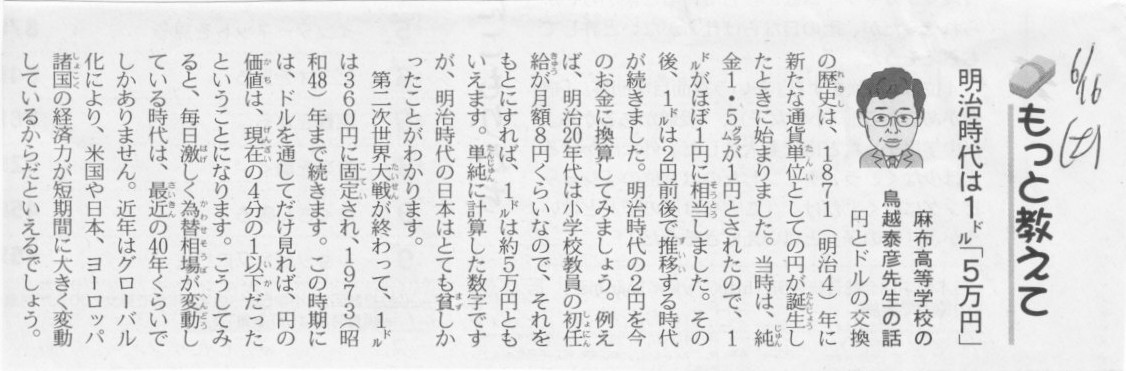 6/16
(土)
もっと教えて
明治時代は1ドル「5万円」
麻布高等学校の
鳥越泰彦先生の話
円とドルの交換
の歴史は、1871(明治4)年に
新たな通貨単位としての円が誕生し
たときに始まりました。当時は、純
金1・5グラムが1円とされたので、1
ドルがほぼ1円に相当しました。その
後、1ドルは2円前後で推移する時代
が続きました。明治時代の2円を今
のお金に換算してみましょう。例え
ば、明治20年代は小学校教員の初任
給が月額8円くらいなので、それを
もとにすれば、1ドルは約5万円とも
いえます。単純に計算した数字です
が、明治時代の日本はとても貧しか
ったことがわかります。
第二次世界大戦が終わって、1ドル
は360円に固定され、1973(昭
和48)年まで続きます。この時期に
は、ドルを通してだけ見れば、円の
価値は、現在の4分の1以下だった
ということになります。こうしてみ
ると、毎日激しく為替相場が変動し
ている時代は、最近の40年くらいで
しかありません。近年はグローバル
化により、米国や日本、ヨーロッパ
諸国の経済力が短期間に大きく変動
しているからだといえるでしょう。